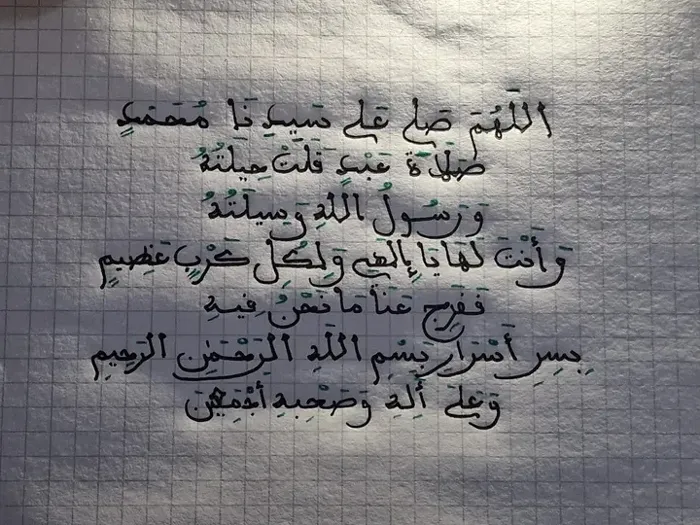 اللَّهُمَّ صَلِّ عَلَى سَيِّدِنَا مُحَمَّدٍ
صَلَاةَ عَبْدٍ قَلَّتْ حِيلَتُهُ
وَرَسُولُ اللَّهِ وَسِيلَتُهُ
وَأَنْتَ لَهَا يَا إِلَهِي وَلِكُلِّ كَرْبٍ عَظِيمٍ
فَفَرِّجْ عَنَّا مَا نَحْنُ فِيهِ
بِسِرِّ أَسْرَارِ بِسْمِ اللَّهِ الرَّحْمَنِ الرَّحِيمِ
وَعَلَى أَلِهِ وَصَحْبِهِ أَجْمَعِينَ